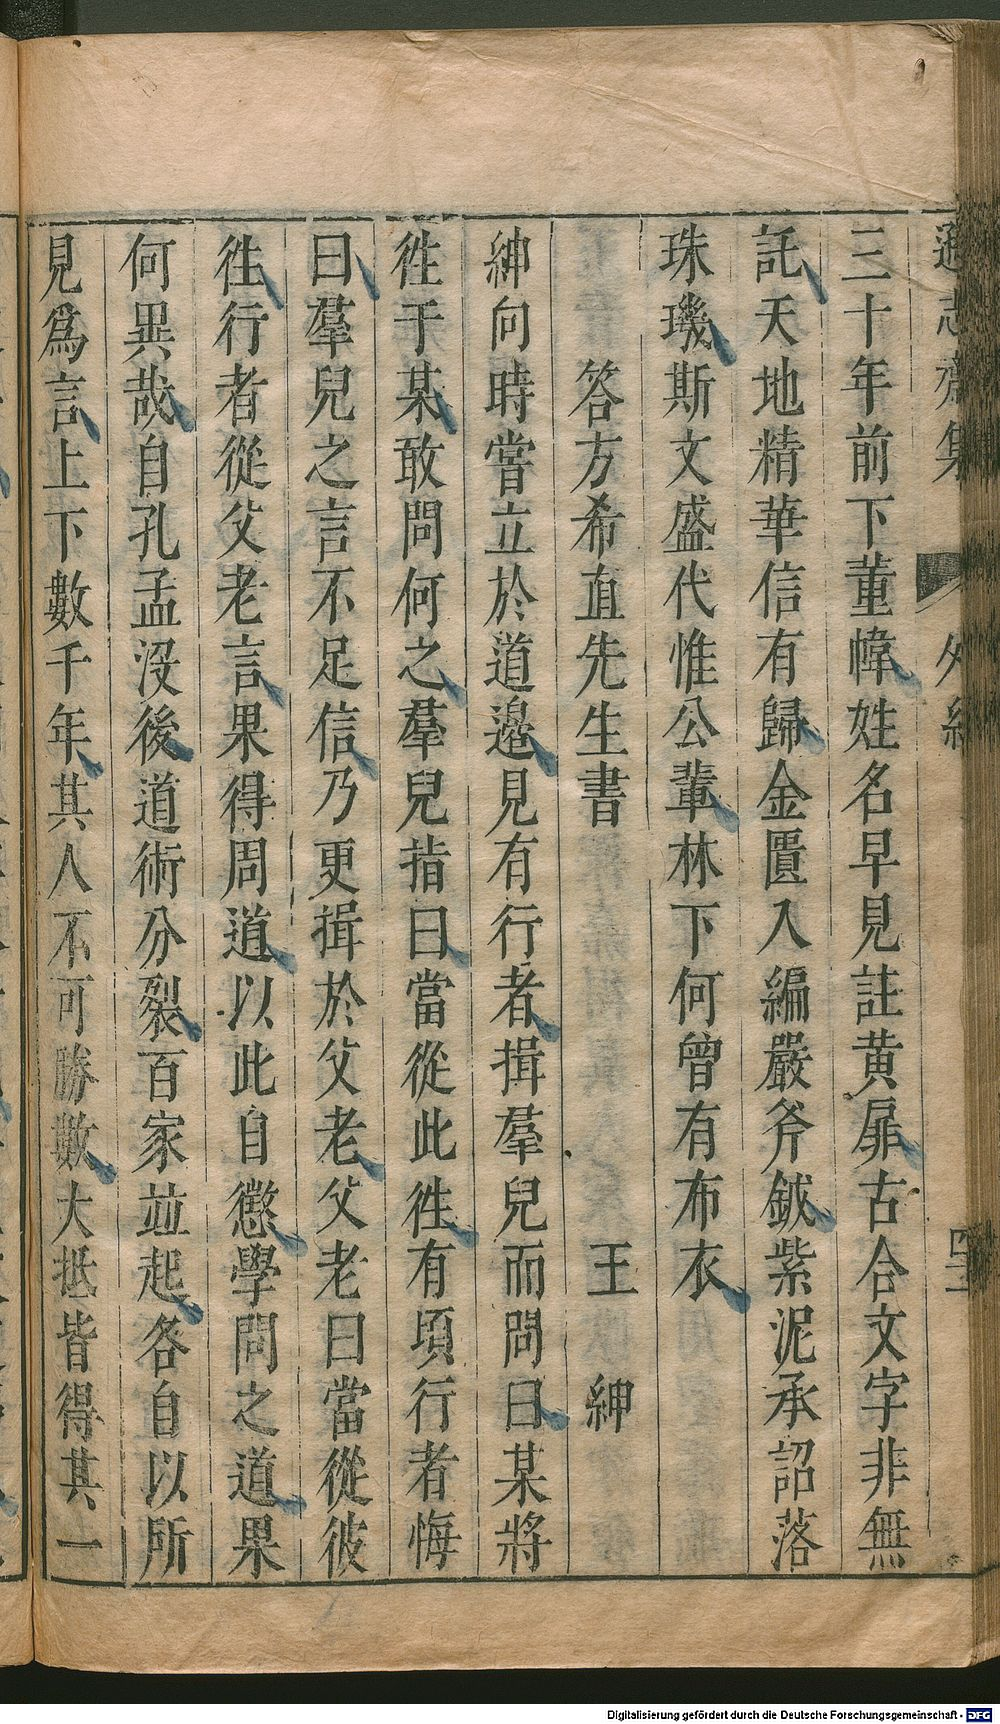 遜志齋集　外紀　四二
三十年前下董幃姓名早見註黄扉古合文字非無
託天地精華信有歸金匱入編嚴斧鉞紫泥承詔落
珠璣斯文盛代惟公輩林下何曾有布衣
答方希直先生書　王　紳
紳向時嘗立於道邉見有行者揖羣兒而問曰某將
徃于某敢問何之羣兒指曰當從此徃有頃行者悔
曰羣兒之言不足信乃更揖於父老父老曰當從彼
徃行者從父老言果得周道以此自懲學問之道果
何異哉自孔孟没後道術分裂百家並起各自以所
見爲言上下數千年其人不可勝數大抵皆得其一
Digitalisierung gefördert durch die Deutsche Forschungsgemeinschaft - DFG